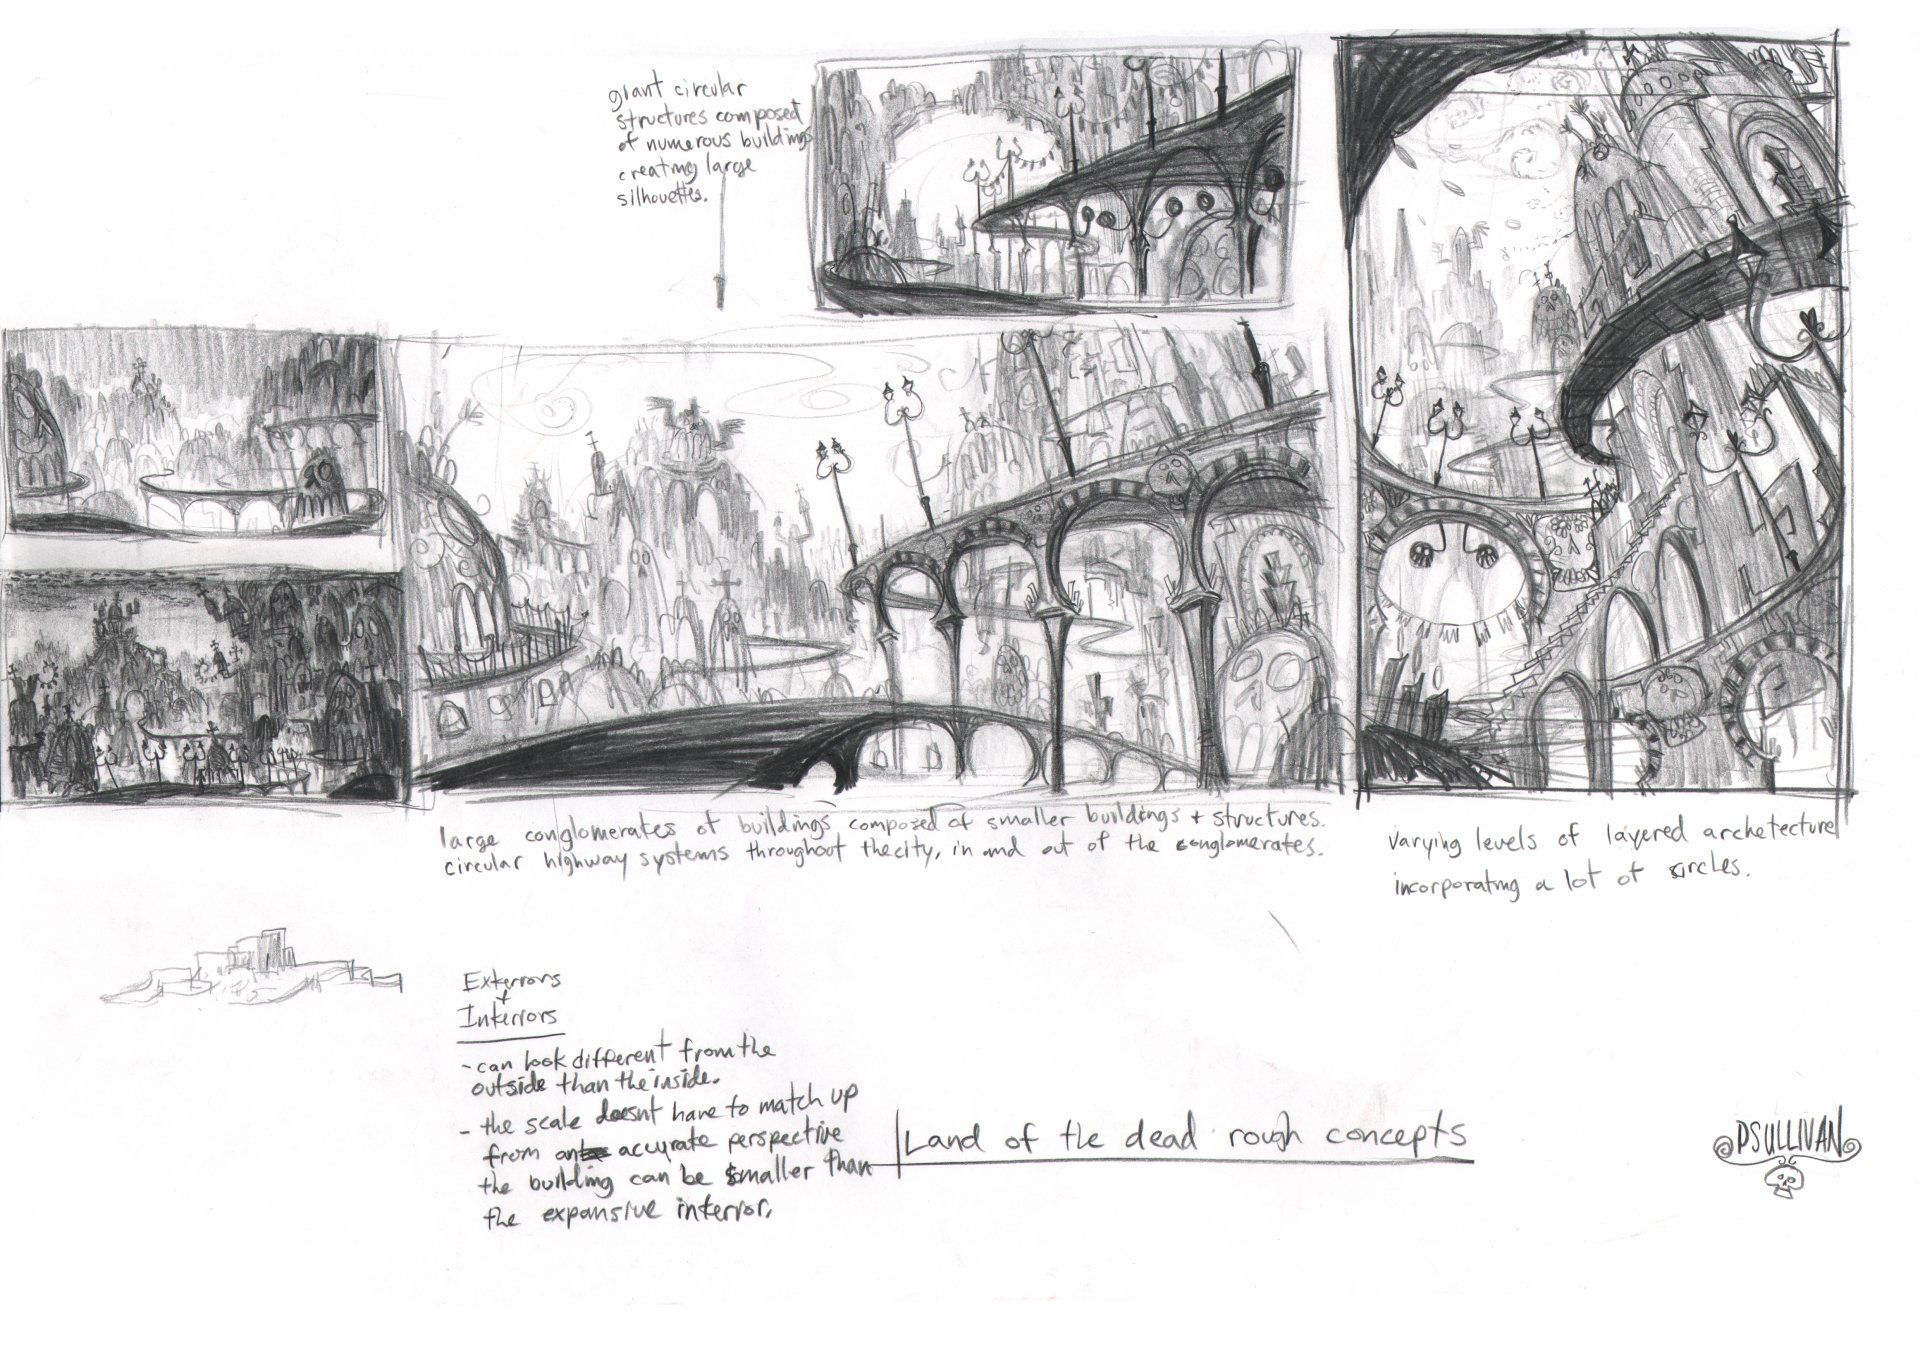 giant circular
structures composed
of numerous buildings
creating large
silhouettes.
large conglomerates of buildings composed of smaller buildings + structures.
circular highway systems throughout the city, in and out of the conglomerates.
varying levels of layered archetecture
incorporating a lot of circles.
Exterrors
+
Interrors
- can look different from the
outside than the inside.
- the scale doesnt have to match up
from accurate perspective
the building can be smaller than
the expansive interror.
Land of the dead rough concepts
PSULLIVAN